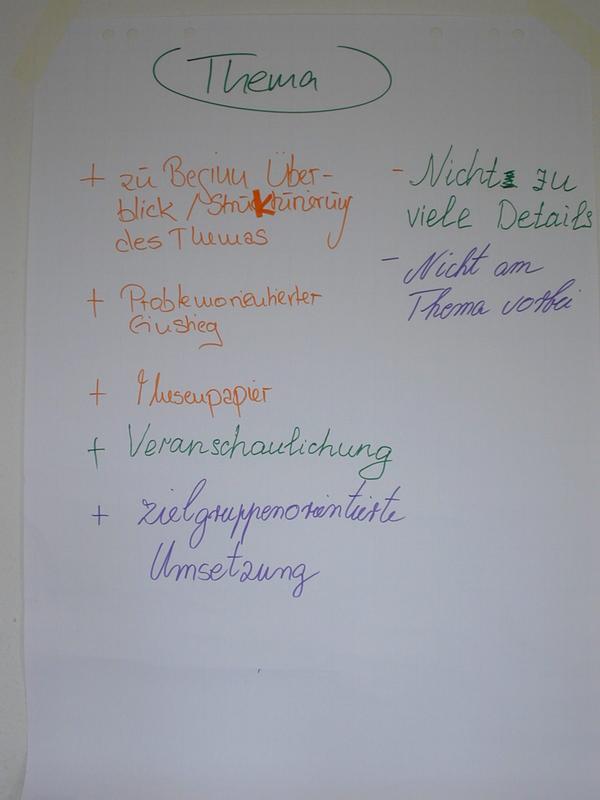 Thema
+ zu Beginn Über-
blick / Strukturierung
des Themas
+ Problemorientierter
Einstieg
+ Thesenpapier
+ Veranschaulichung
+ zielgruppenorientierte
Umsetzung
- Nicht zu
viele Details
- Nicht am
Thema vorbei